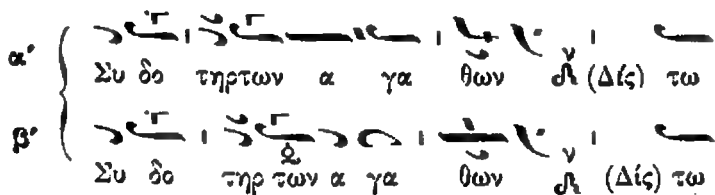 α' Συ δο τηρτων α γα θων (Δίς) τω
β' Συ δο τηρ των α γα θων (Δίς) τω